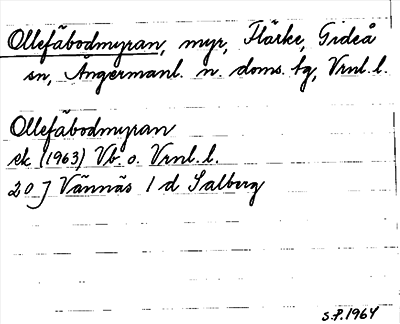 Ollefäbodmyran, myr, Flärke, Gideå
sn, Ångermanl. n. doms. tg, Vrnl. l.
Ollefäbodmyran
ek (1963) Vb. o. Vrnl. l.
20 J Vännäs 1 d Salberg
S.P. 1964